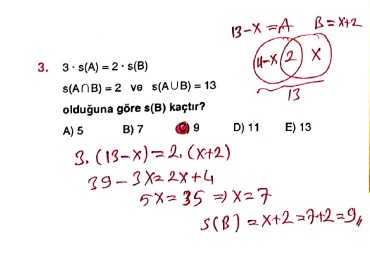 13-x=A B=x+2
11-x 2 x
13
3. 3 · s(A) = 2 · s(B)
s(A∩B) = 2 ve s(A∪B) = 13
olduğuna göre s(B) kaçtır?
A) 5 B) 7 C) 9 D) 11 E) 13
3.(13-x)=2.(x+2)
39-3x=2x+4
5x=35 ⇒ x=7
s(B)=x+2=7+2=9//